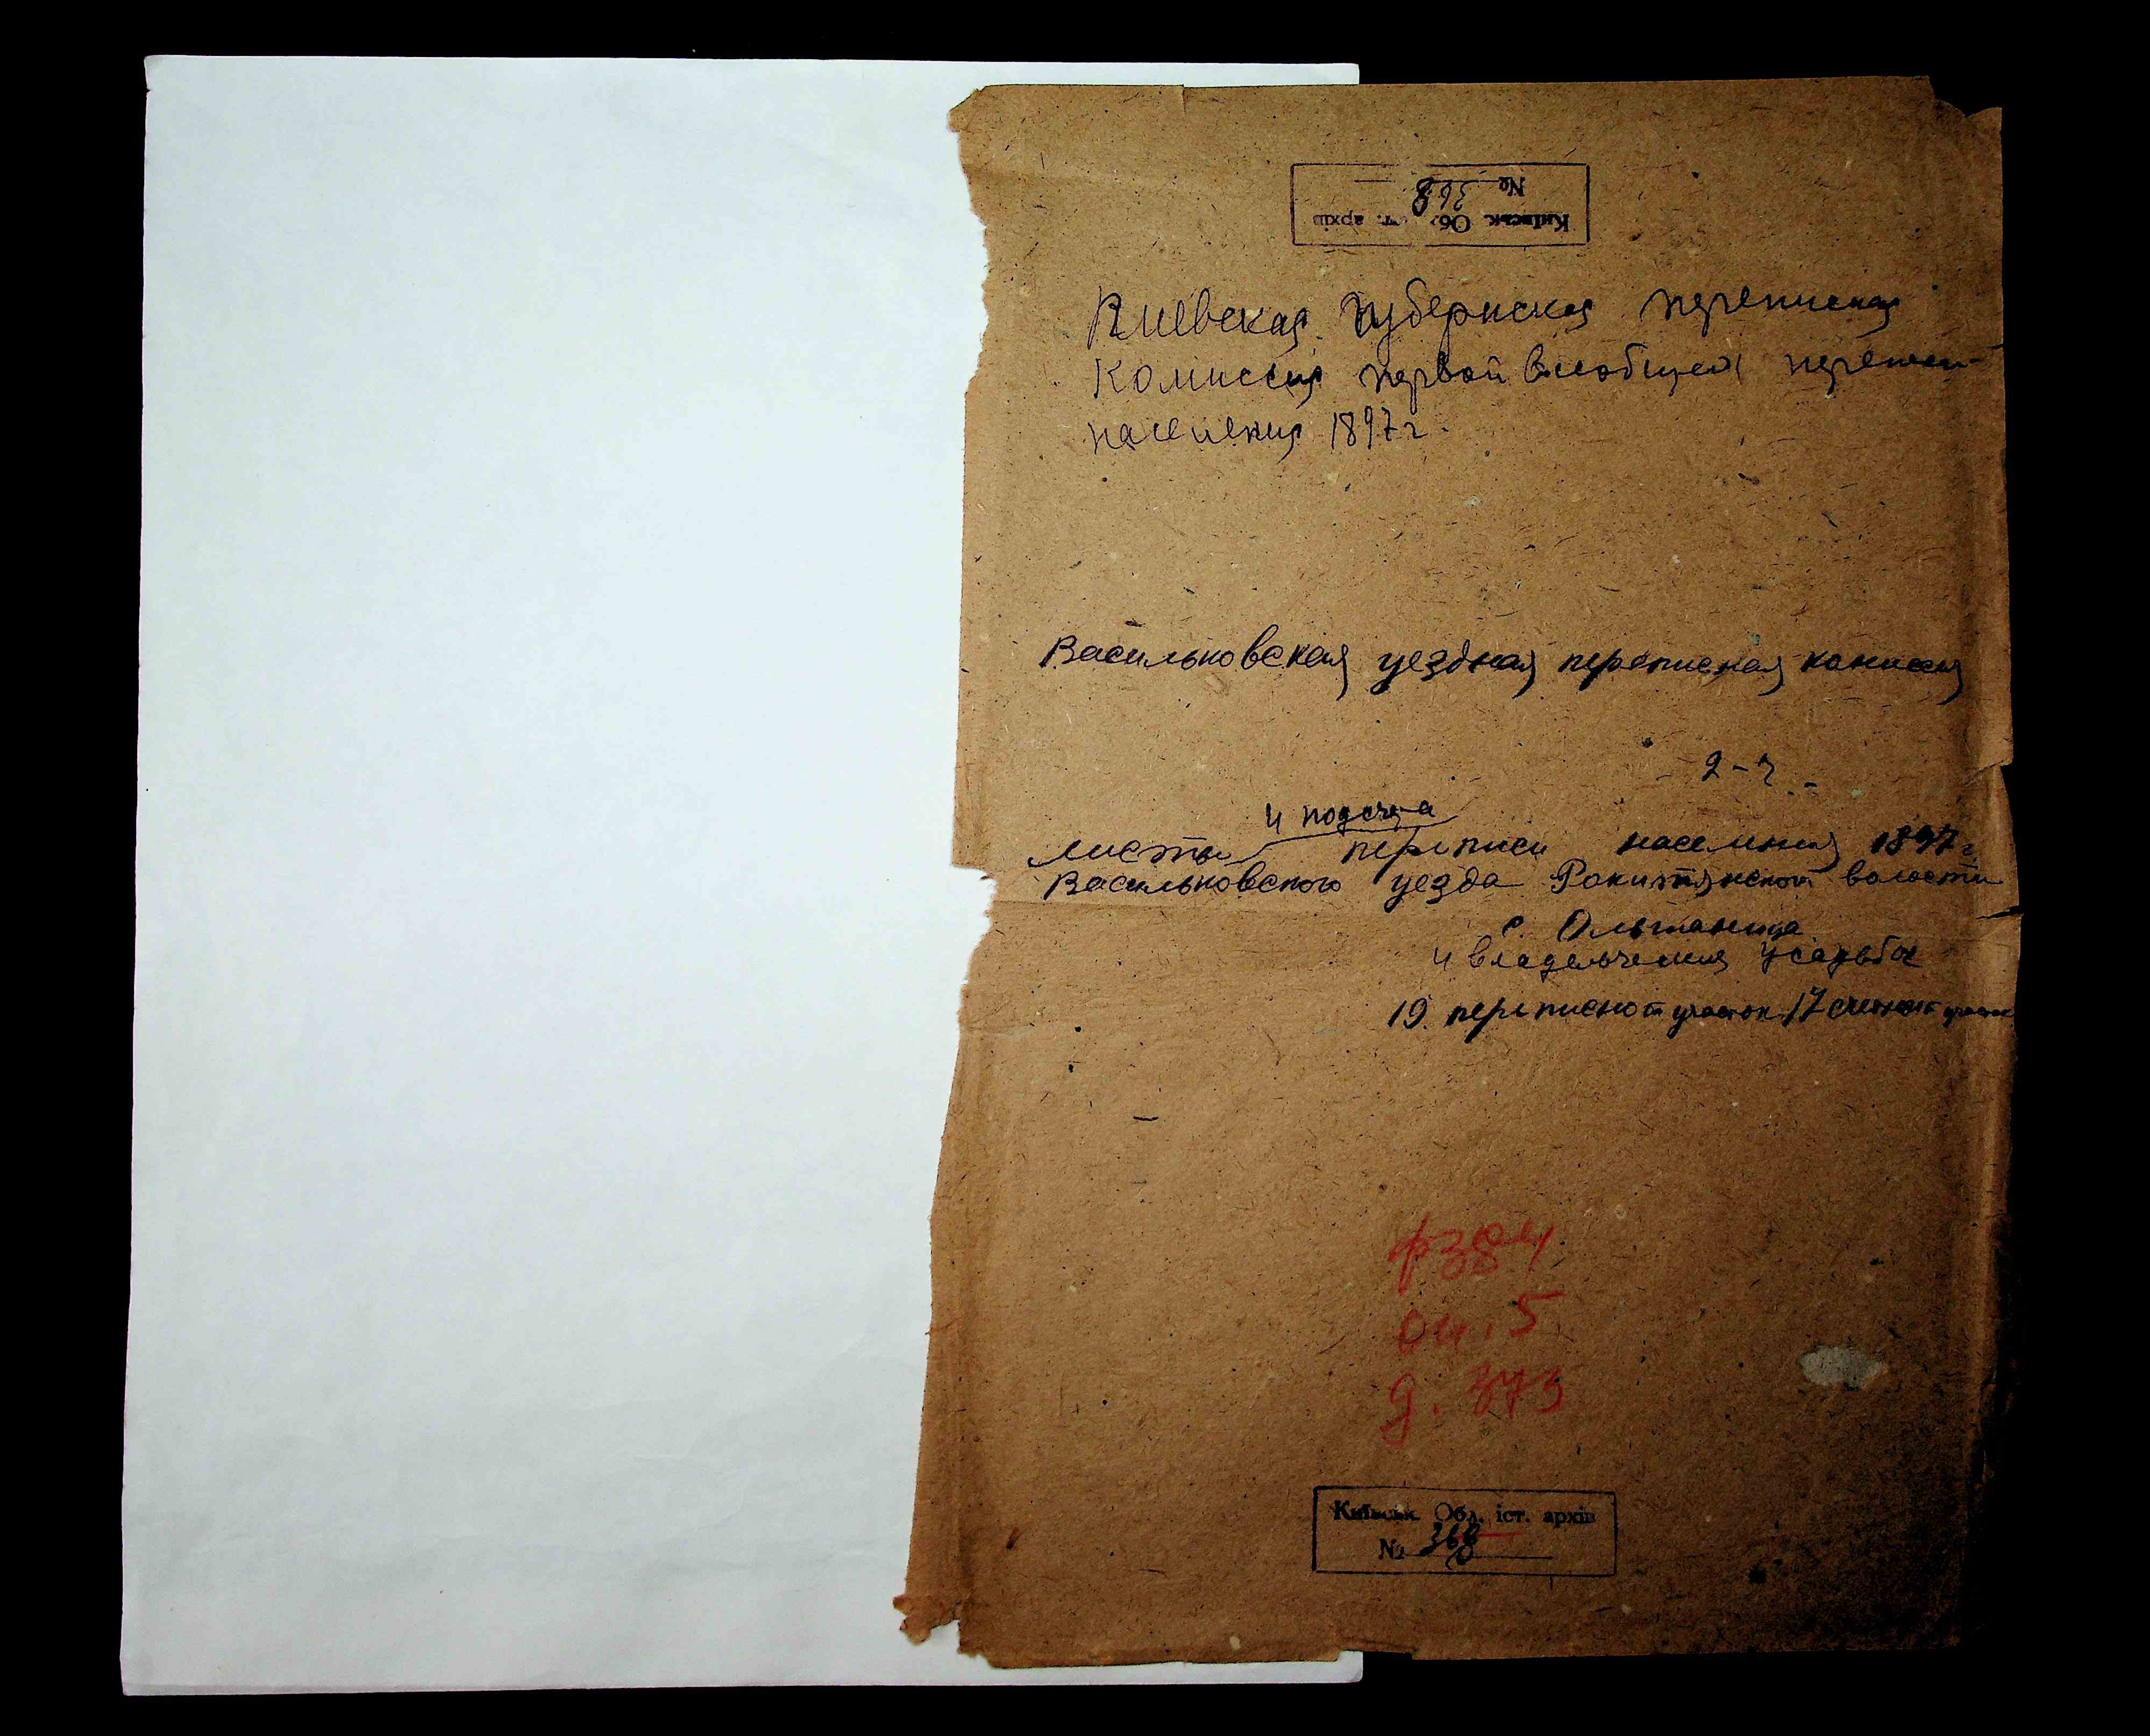 Київськ Обл. іст. архів
№ 368
Киевская губернская переписная
комиссия первой всеобщей переписи
населения 1897 г.
Васильковская уездная переписная комиссия
2-
и подсчета
листы переписи населения 1897 г.
Васильковского уезда Рокитянской волости
с. Ольшаница
и владельческая усадьба
19. переписной участок 17 счетный участок
ф 384
оп. 5
д. 373
Київськ Обл. іст. архів
№ 368